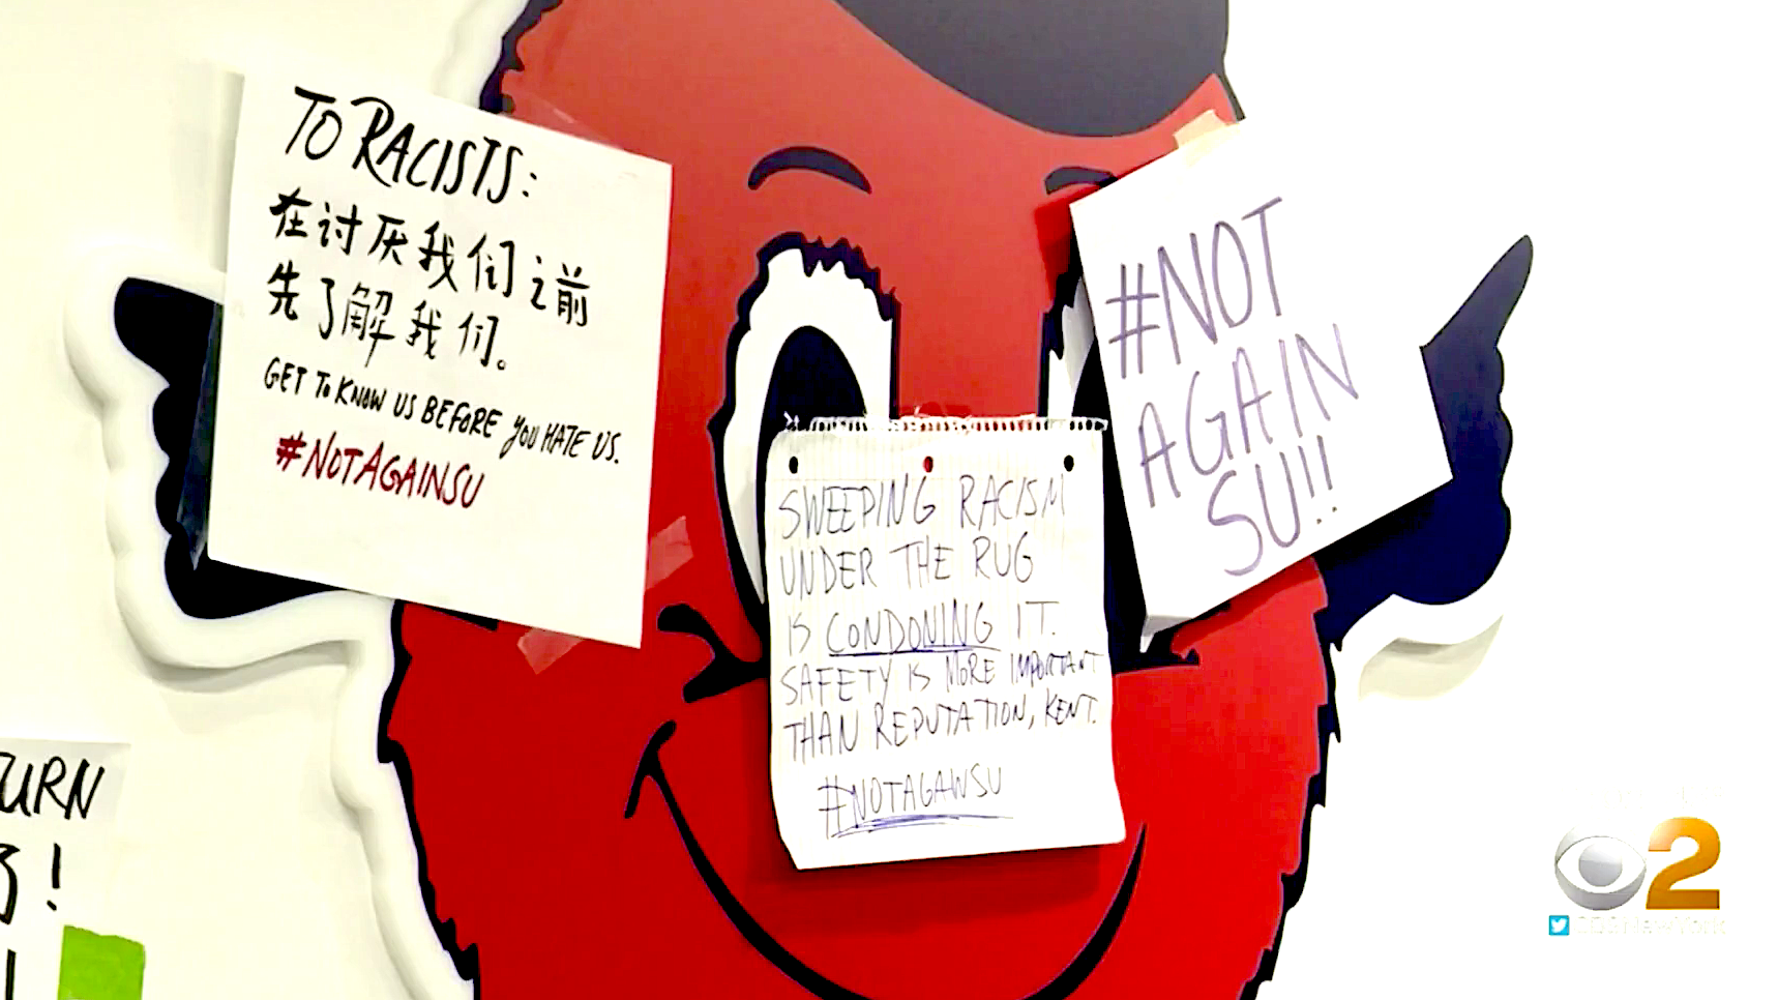 TO RACISTS:
在讨厌我们之前
先了解我们。
GET TO KNOW US BEFORE YOU HATE US.
#NOTAGAINSU
#NOT
AGAIN
SU!!
SWEEPING RACISM
UNDER THE RUG
IS CONDONING IT.
SAFETY IS MORE IMPORTANT
THAN REPUTATION, KENT.
#NOTAGAINSU
URN
!
2
CBSNewYork